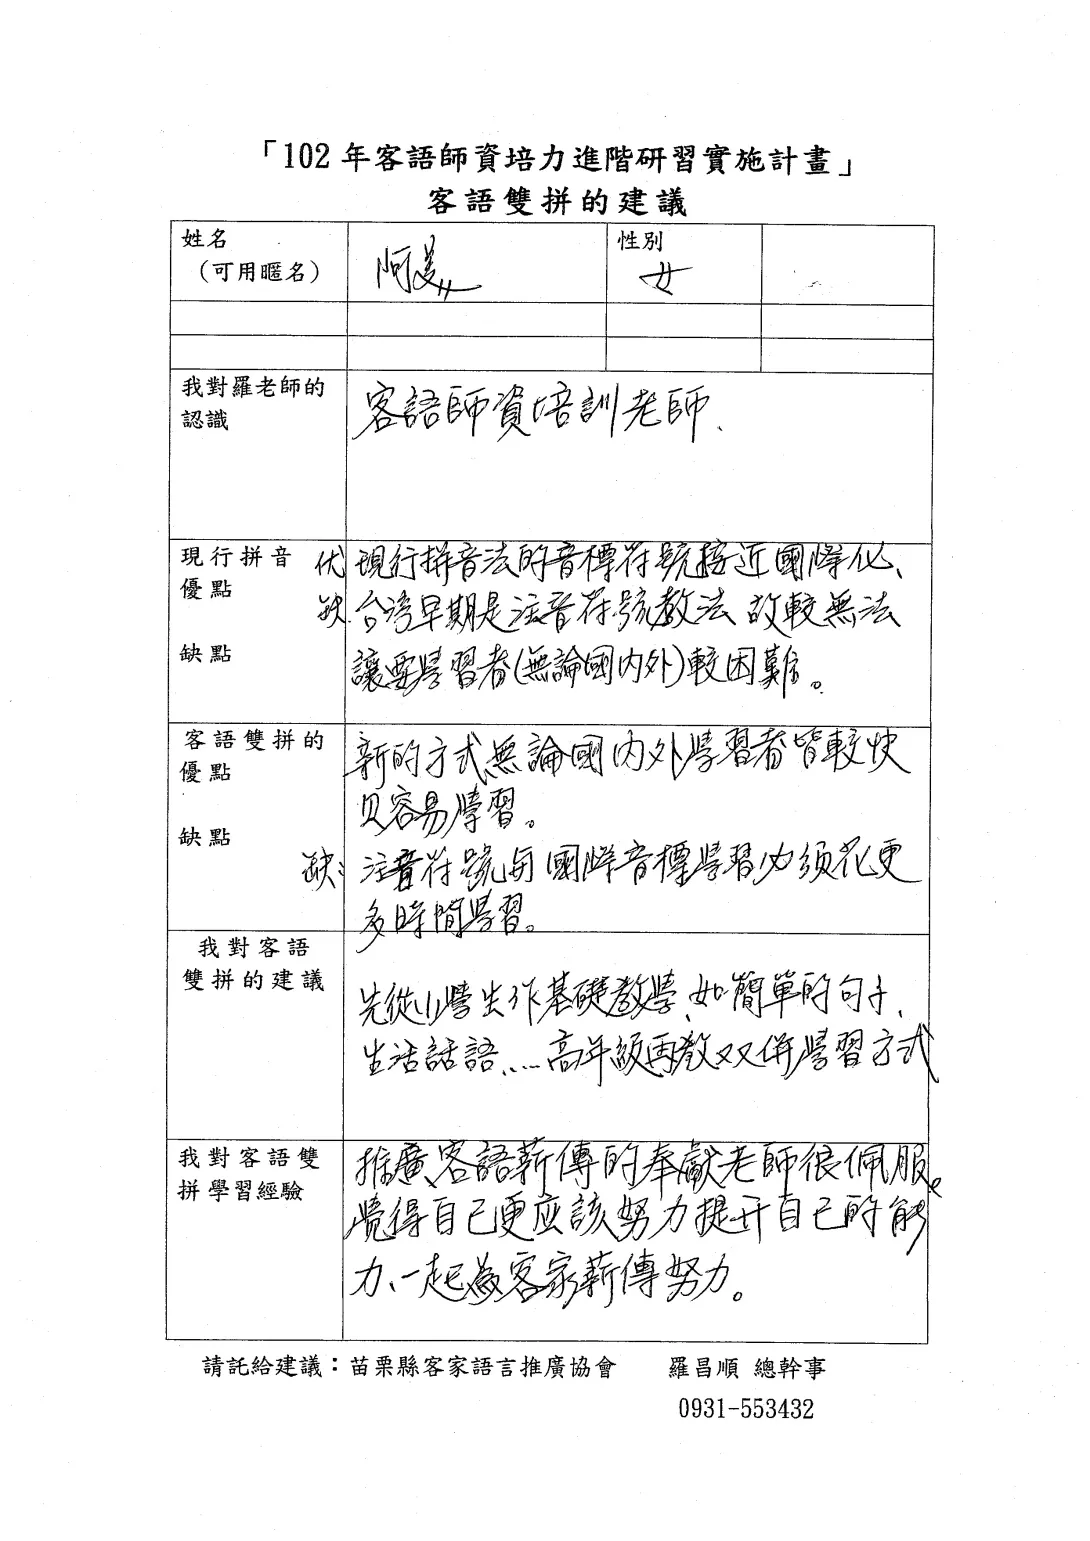 「102 年客語師資培力進階研習實施計畫」
客語雙拼的建議
姓名 阿美 性別
（可用暱名） 女
我對羅老師的 客語師資培訓老師、
認識
現行拼音 优 現行拼音法的音標符號接近國際化、
優點 缺.台湾早期是注音符號教法 故較無法
缺點 讓要學習者(無論國內外)較困難。
客語雙拼的 新的方式無論國內外學習者皆較快
優點 又容易學習。
缺點
缺： 注音符號与國際音標學習必須花更
多時間學習。
我對客語
雙拼的建議 先從小學生作基礎教學、如簡單的句子、
生活話語、....高年級再教双併學習方式
我對客語雙 推廣客語薪傳的奉獻老師很佩服。
拼學習經驗 覺得自己更应該努力提升自己的能
力、一起為客家薪傳努力。
請託給建議：苗栗縣客家語言推廣協會 羅昌順 總幹事
0931-553432